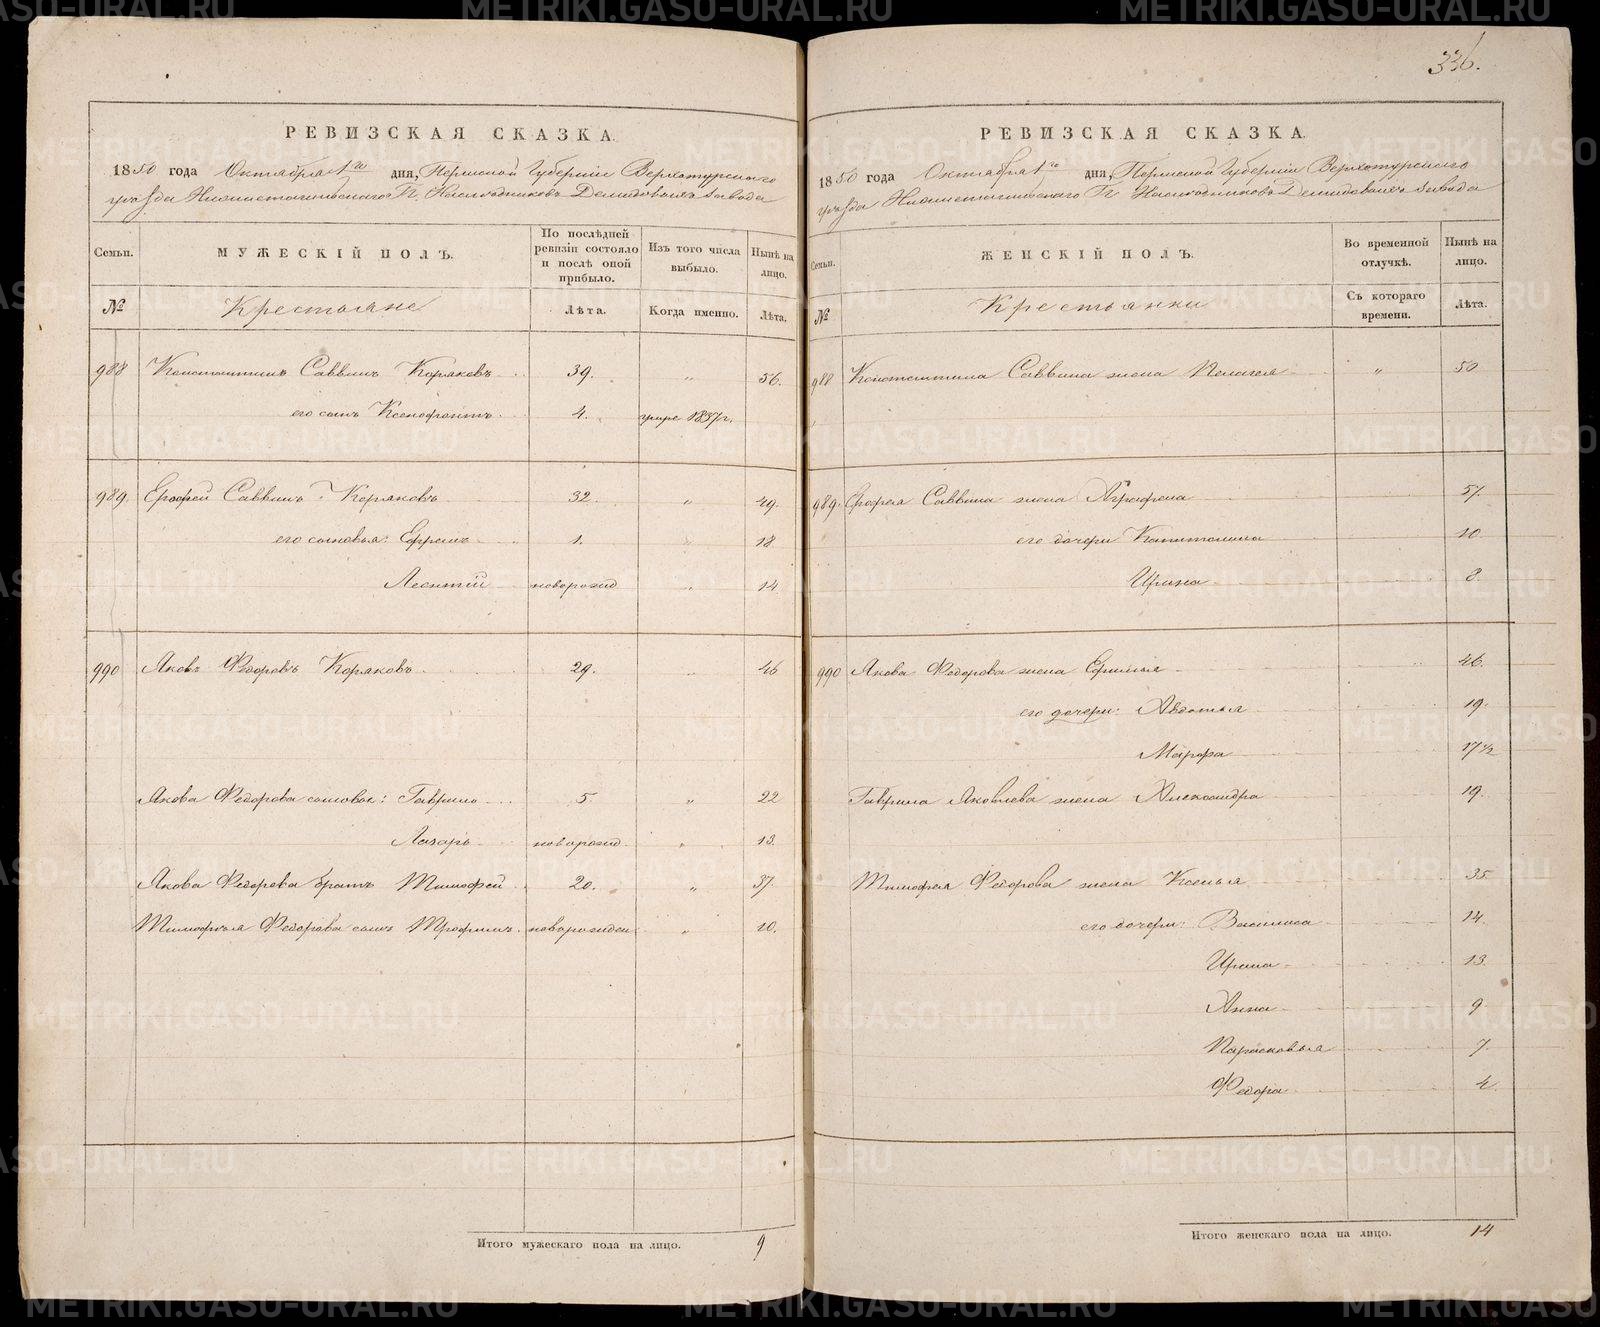 336.
РЕВИЗСКАЯ СКАЗКА.
1850 года Октября 1го дня, Пермской Губерніи Верхотурскаго
уѣзда Нижнетагильскаго Гг. Наслѣдниковъ Демидовыхъ завода
Семьи. МУЖЕСКІЙ ПОЛЪ. По послѣдней ревизіи состояло и послѣ оной прибыло. Изъ того числа выбыло. Нынѣ на лицо.
№ Крестьяне Лѣта. Когда именно. Лѣта.
988 Константинъ Саввинъ Коряковъ 39. " 56.
его сынъ Ксенофонтъ 4. умре 1837г.
989. Ерофей Саввинъ Коряковъ 32 " 49.
его сыновья: Ефремъ 1. " 18
Леонтій новорожд " 14
990 Яковъ Ѳедоровъ Коряковъ 29. " 46
Якова Ѳедорова сыновья: Гаврило 5 " 22
Лазарь новорожд. " 13.
Якова Ѳедорова братъ Тимофей 20. " 37.
Тимофея Ѳедорова сынъ Трофимъ новорожден " 10.
Итого мужескаго пола на лицо. 9
РЕВИЗСКАЯ СКАЗКА.
1850 года Октября 1го дня, Пермской Губерніи Верхотурскаго
уѣзда Нижнетагильскаго Гг. Наслѣдниковъ Демидовыхъ завода
Семьи. ЖЕНСКІЙ ПОЛЪ. Во временной отлучкѣ. Нынѣ на лицо.
№ Крестьянки Съ котораго времени. Лѣта.
988 Константина Саввина жена Пелагея " 50
989. Ерофея Саввина жена Аграфена 51.
его дочери Капитолина 10.
Ирина 8.
990 Якова Ѳедорова жена Ефимья 46.
его дочери: Авдотья 19.
Марфа 17½
Гаврила Яковлева жена Александра 19.
Тимофея Ѳедорова жена Ксенья 35
его дочери: Василиса 14.
Ирина 13.
Анна 9
Парасковья 7.
Федора 4.
Итого женскаго пола на лицо. 14
METRIKI.GASO-URAL.RU